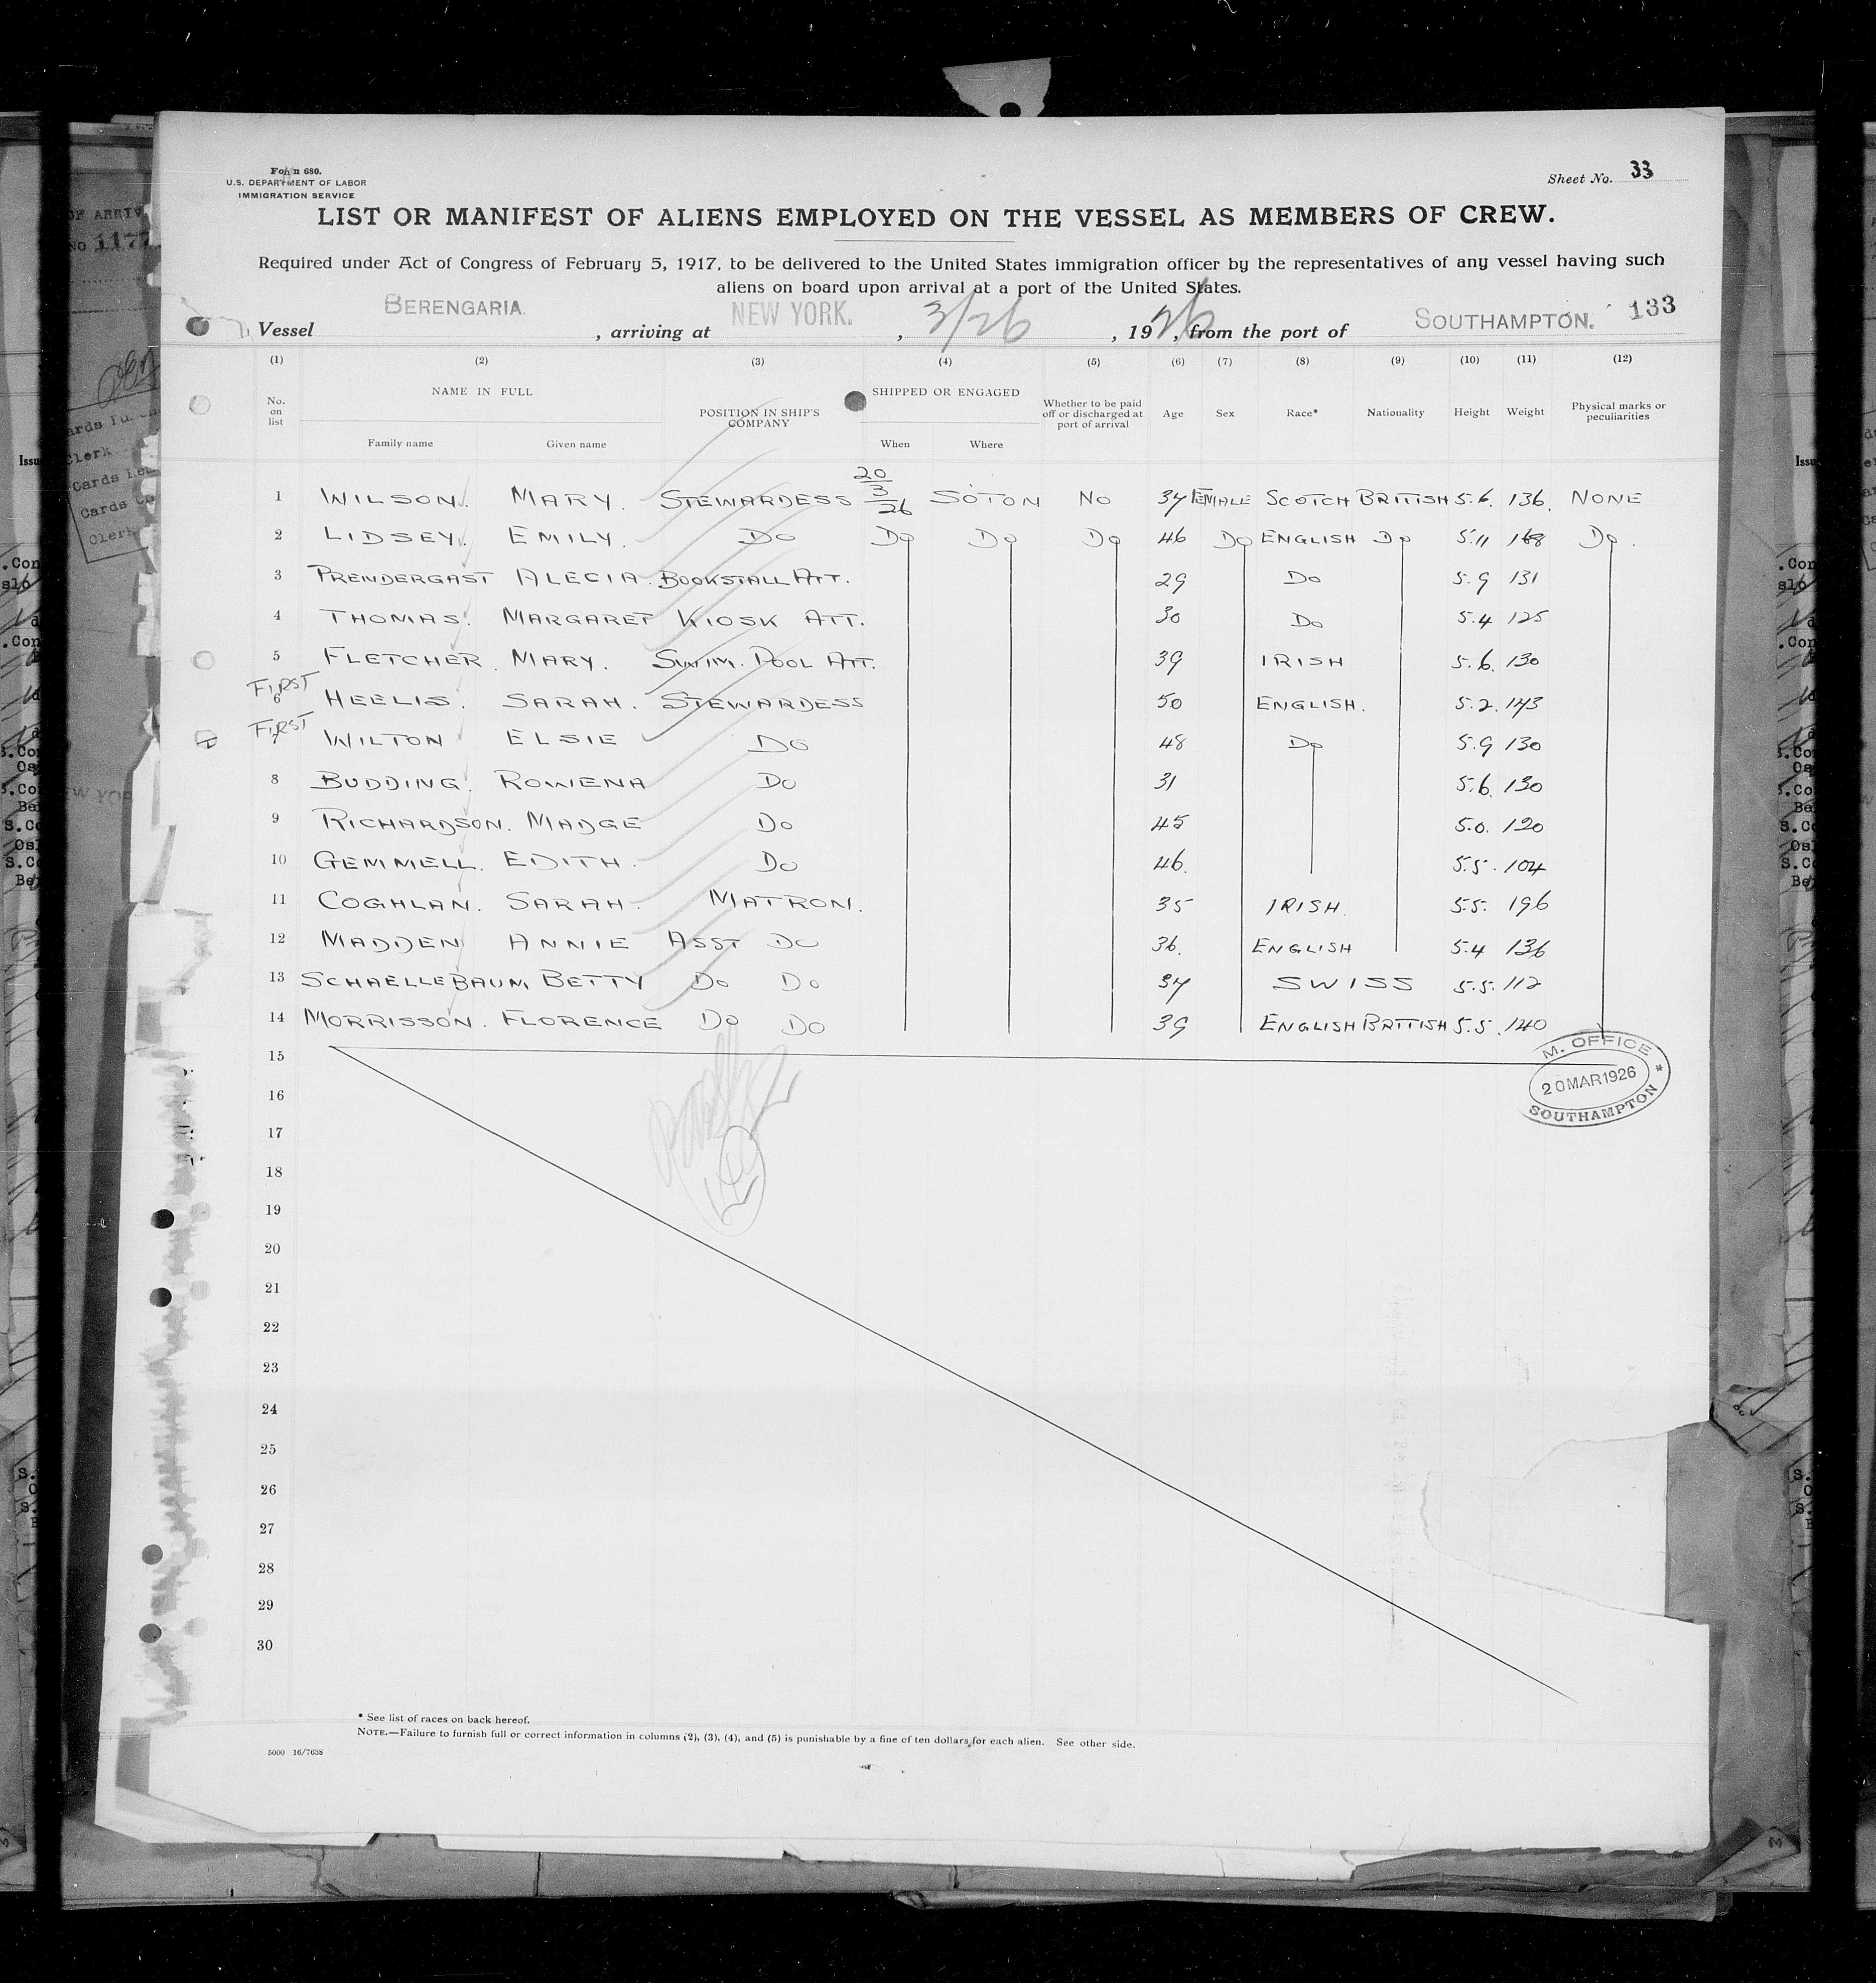 Form 680.
U.S. DEPARTMENT OF LABOR
IMMIGRATION SERVICE
Sheet No. 33
LIST OR MANIFEST OF ALIENS EMPLOYED ON THE VESSEL AS MEMBERS OF CREW.
Required under Act of Congress of February 5, 1917, to be delivered to the United States immigration officer by the representatives of any vessel having such
aliens on board upon arrival at a port of the United States.
133
Vessel BERENGARIA. , arriving at NEW YORK. , 3/26 , 1926, from the port of SOUTHAMPTON.
(1) (2) (3) (4) (5) (6) (7) (8) (9) (10) (11) (12)
No. on list NAME IN FULL Family name Given name POSITION IN SHIP'S COMPANY SHIPPED OR ENGAGED When Where Whether to be paid off or discharged at port of arrival Age Sex Race* Nationality Height Weight Physical marks or peculiarities
1 WILSON. MARY. STEWARDESS 20/3/26 SOTON NO 34 FEMALE SCOTCH BRITISH 5.6. 136. NONE
2 LIDSEY. EMILY. DO DO DO DO 46 DO ENGLISH DO 5.11 168 DO.
3 PRENDERGAST ALECIA. BOOKSTALL ATT. 29 DO 5.9 131
4 THOMAS. MARGARET KIOSK ATT. 30 DO 5.4 125
5 FLETCHER. MARY. SWIM. POOL ATT. 39 IRISH 5.6. 130
FIRST 6 HEELIS. SARAH. STEWARDESS 50 ENGLISH. 5.2. 143
FIRST 7 WILTON ELSIE DO 48 DO 5.9 130
8 BUDDING. ROWENA DO 31 5.6. 130
9 RICHARDSON. MADGE DO 45 5.0. 120
10 GEMMELL. EDITH. DO 46. 5.5. 104
11 COGHLAN. SARAH. MATRON. 35 IRISH. 5.5. 196
12 MADDEN ANNIE ASST DO 36. ENGLISH 5.4 136
13 SCHAELLEBAUM, BETTY DO DO 34 SWISS 5.5. 112
14 MORRISSON. FLORENCE DO DO 39 ENGLISH BRITISH 5.5. 140
15
M. OFFICE
20 MAR 1926
SOUTHAMPTON
16
17
18
19
20
21
22
23
24
25
26
27
28
29
30
* See list of races on back hereof.
NOTE.—Failure to furnish full or correct information in columns (2), (3), (4), and (5) is punishable by a fine of ten dollars for each alien. See other side.
5000 16/7638